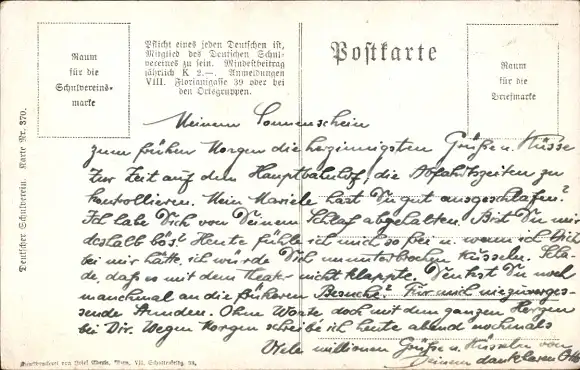 Raum
für die
Schulvereins-
marke
Pflicht eines jeden Deutschen ist,
Mitglied des Deutschen Schul-
vereines zu sein. Mindestbeitrag
jährlich K 2.—. Anmeldungen
VIII. Florianigasse 39 oder bei
den Ortsgruppen.
Postkarte
Raum
für die
Briefmarke
Deutscher Schulverein. Karte Nr. 370.
Meinem Sonnenschein
zum frühen Morgen die herzinnigsten Grüße u. Küsse
Zur Zeit auf dem Hauptbahnhof, die Abfahrtszeiten zu
kontrollieren. Mein Mariele hast Du gut ausgeschlafen?
Ich habe Dich von Deinem Schlaf abgehalten. Bist Du mir
deshalb bös? Heute fühle ich mich so frei u. wenn ich Dich
bei mir hätte, ich würde Dich ununterbrochen küsseln. Scha-
de, daß es mit dem Theater nicht klappte. Denkst Du noch
manchmal an die früheren Besuche? Für mich nie zu verges-
sende Stunden. Ohne Worte doch mit dem ganzen Herzen
bei Dir. Wegen Morgen schreibe ich heute abend nochmals
Viele millionen Grüße u. Küsseln von
Deinem dankbaren Otto
Kunstdruckerei von Josef Eberle, Wien, VII. Schottenfeldg.